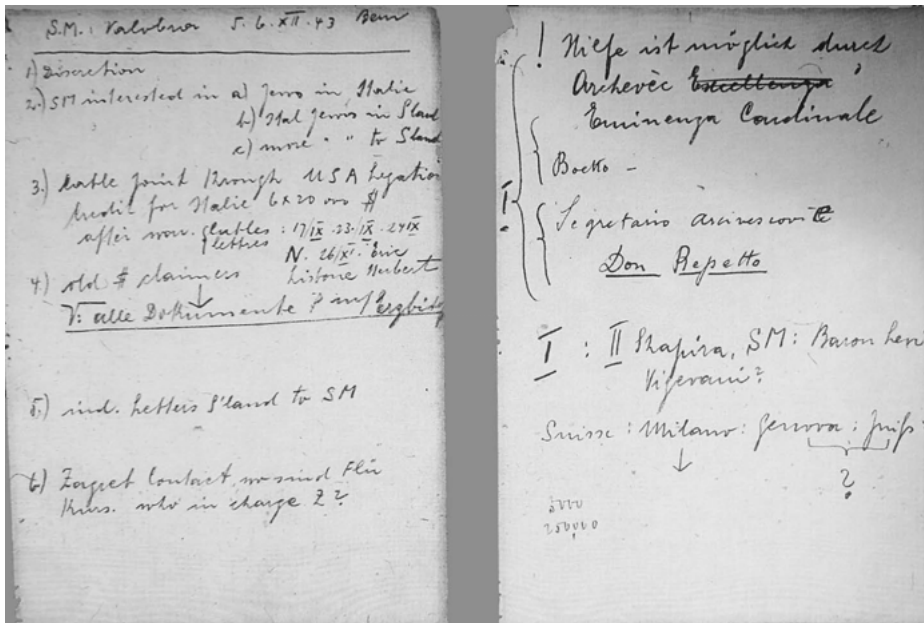 S.M.: Valobra 5.6.XII.43 Bern
1) Discretion
2.) SM interested in a) Jews in Italie
b) Ital Jews in Sland
c) more " " to Sland
3.) Cable Joint through USA Legation
Credit for Italie 6x20 000 $
after war. cables : 17/IX . 23./IX . 24 IX
lettres N. 26/XI.
histoire
4.) old $ claimers
V: alle Dokumente ?
5.) ind. Letters S'land to SM
6) Zagreb Contact, wo sind
who in charge Z?
! Hilfe ist möglich durch
Archevêc Excellenza
Eminenza Cardinale
I
Boetto -
Segretario arcivescovile
Don Repetto
I : II Shapira, SM: Baron
Vigevani?
Suisse : Milano : Genova :
?
5000
250,000